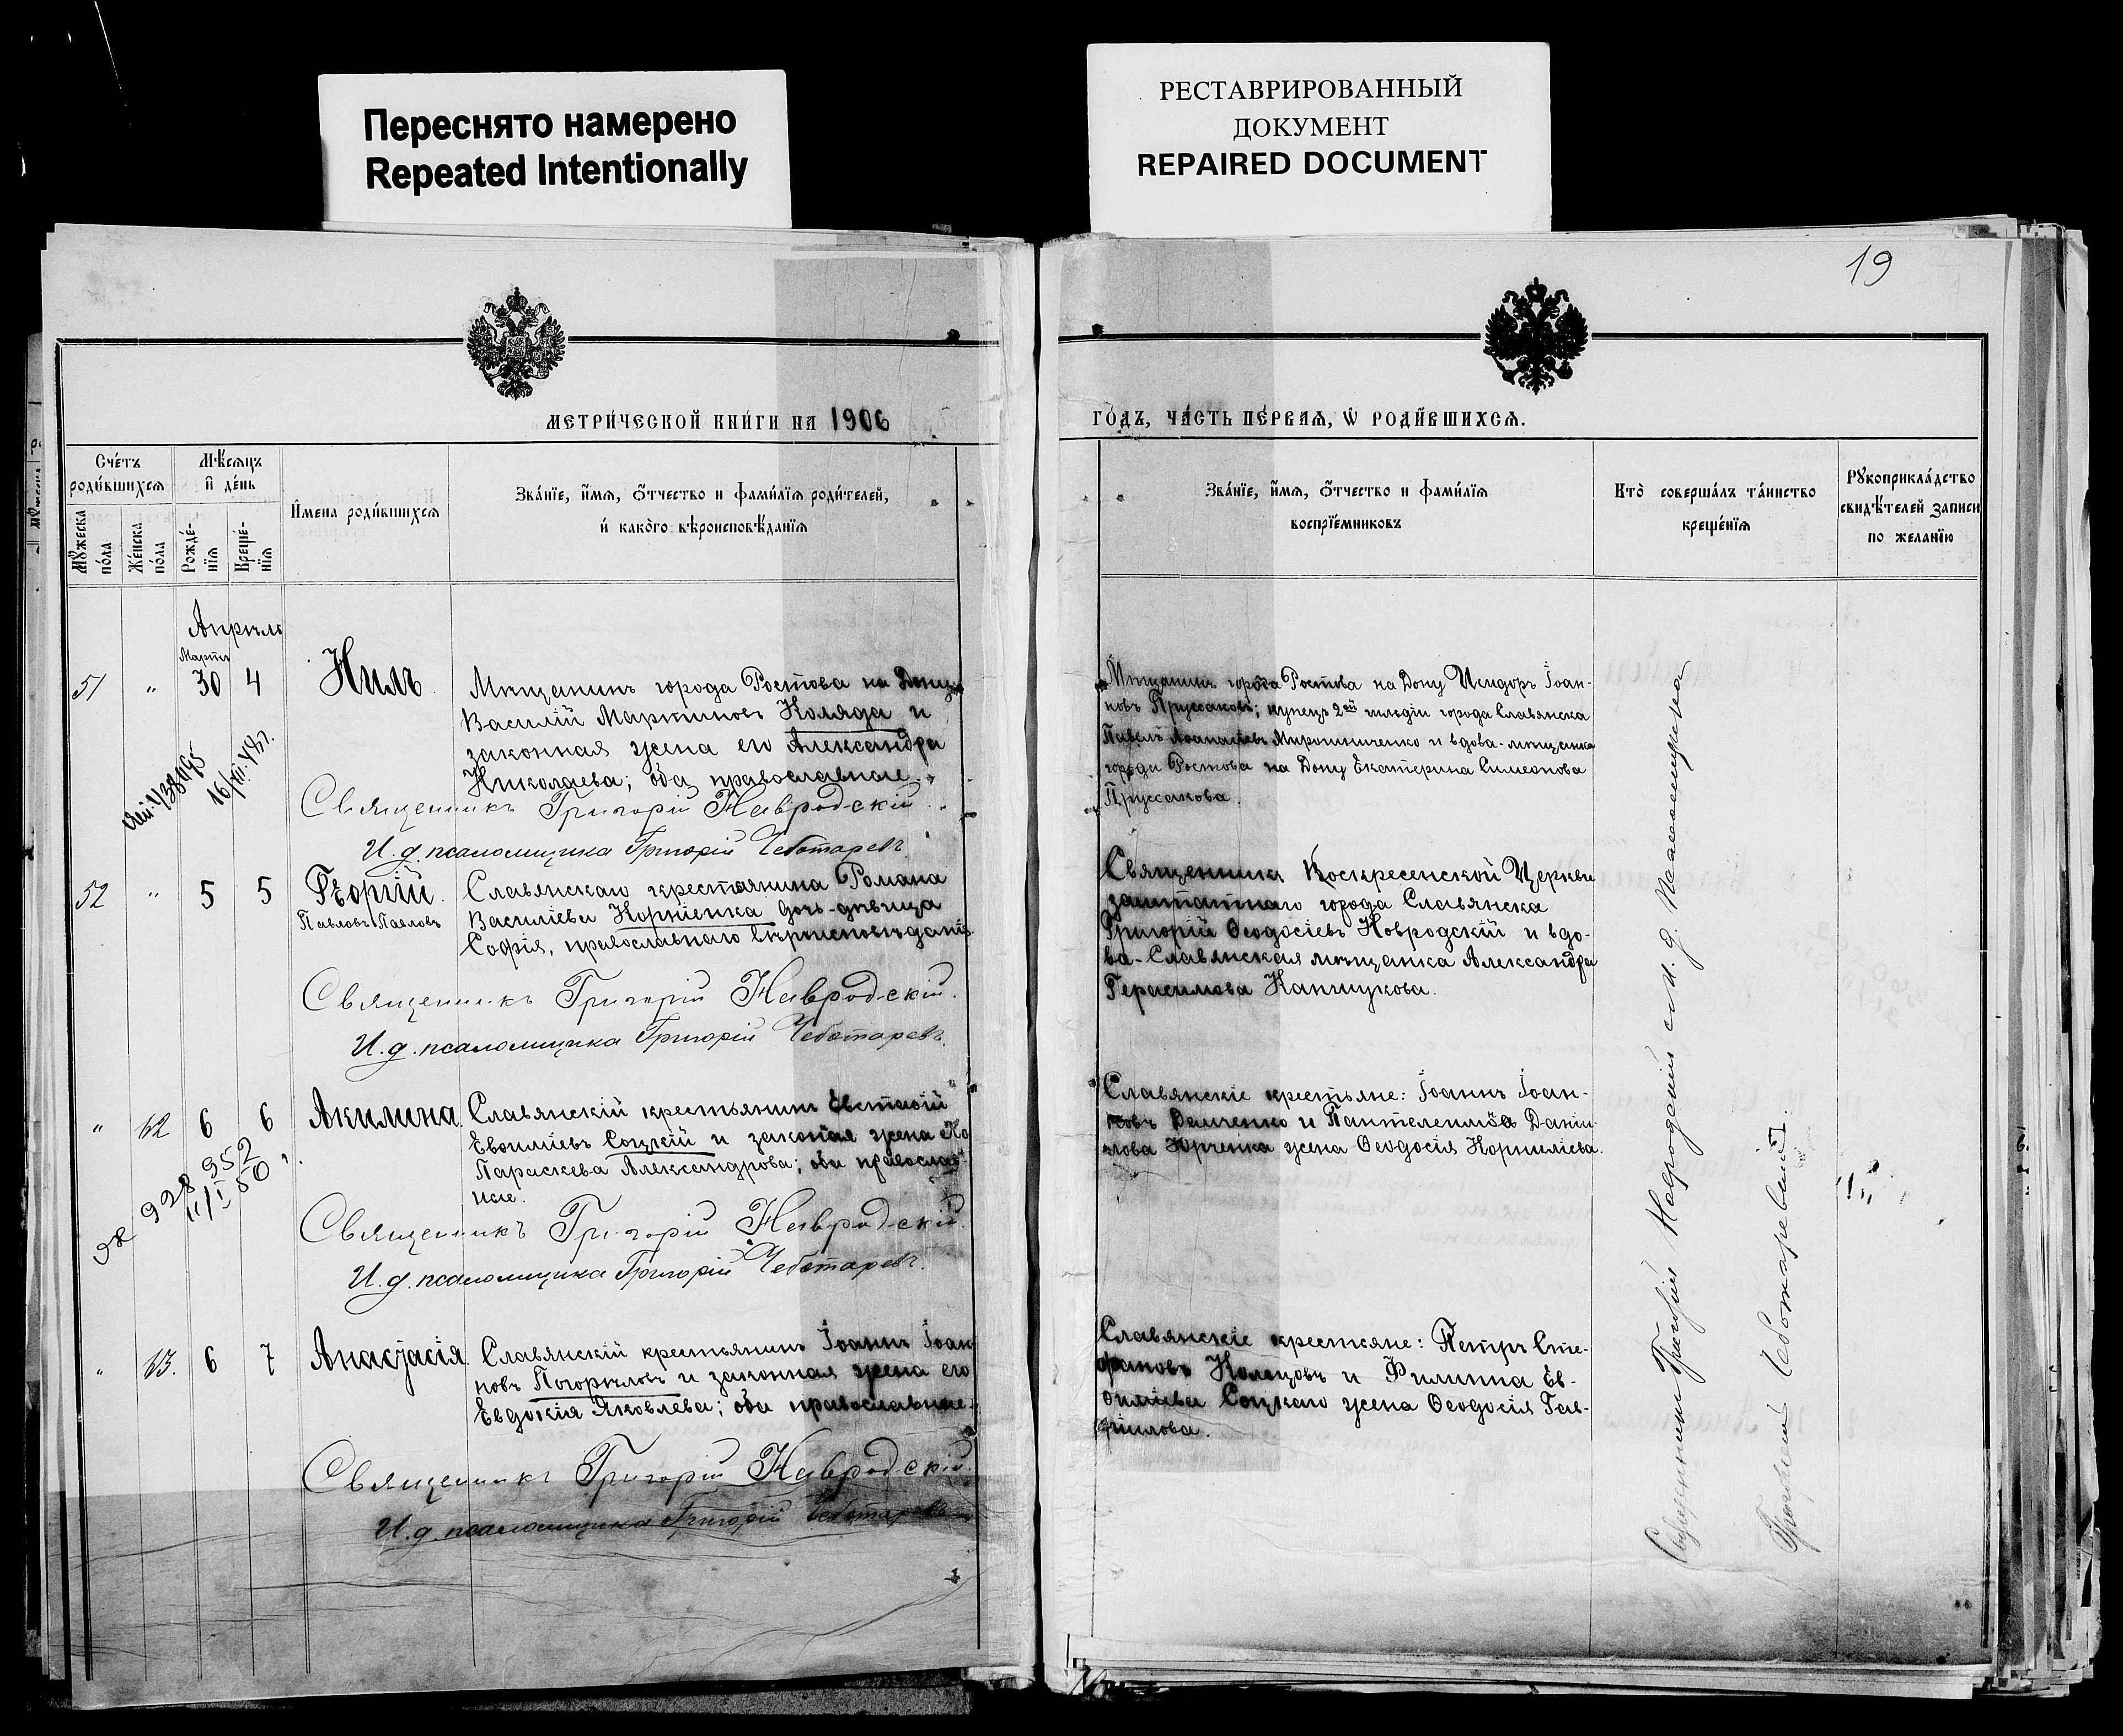 Переснято намерено
Repeated Intentionally
РЕСТАВРИРОВАННЫЙ
ДОКУМЕНТ
REPAIRED DOCUMENT
19
МЕТРИ́ЧЕСКОЙ КНИ́ГИ НА 1906
ГО́ДЪ, ЧА́СТЬ ПЕ́РВАЯ, Ѡ РОДИ́ВШИХСЯ.
Сче́тъ
роди́вшихся
Мѣ́сяцъ
и де́нь
Мꙋ́жеска
по́ла
Же́нска
по́ла
Рожде́-
нїя
Креще́-
нїя
И҆мена роди́вшихся
Зва́нїе, и҆́мя, ѻ҆́тчество и фами́лїя роди́телей,
и҆ како́го вѣроисповѣ́данїя
Зва́нїе, и҆́мя, ѻ҆́тчество и фами́лїя
воспрїе́мниковъ
Кто̀ соверша́лъ та́инство
креще́нїя
Рꙋкоприкла́дство
свидѣ́телей записи
по жела́нїю
Апрѣль
Марта
51 " 30 4 Нилъ.
Мѣщанинъ города Ростова на Дону
Василій Мартиновъ Коляда и
законная жена его Александра
Николаева; оба православные.
16/XII.
Священникъ Григорій Навродскій.
И. д. псаломщика Григорій Чеботаревъ.
Мѣщанинъ города Ростова на Дону Исидоръ Іоан-
новъ Пруссаковъ; купецъ 2ой гильдіи города Славянска
Павелъ Аѳанасіевъ Мирошниченко и вдова-мѣщанка
города Ростова на Дону Екатерина Симеонова
Пруссакова.
52 " 5 5 Георгій.
Павловъ Павловъ
Славянскаго крестьянина Романа
Василіева Корніенка дочь-дѣвица
Софія, православнаго вѣроисповѣданія.
Священникъ Григорій Навродскій.
И. д. псаломщика Григорій Чеботаревъ.
Священникъ Воскресенской Церкви
заштатнаго города Славянска
Григорій Ѳеодосіевъ Новродскій и вдо-
ва-Славянская мѣщанка Александра
Герасимова
" 62 6 6 Акилина.
Славянскій крестьянинъ Евстаѳій
Евѳиміевъ Соцкій и законная жена его
Параскева Александрова; оба православ-
ные.
928 952
11/I 50
Священникъ Григорій Навродскій.
И. д. псаломщика Григорій Чеботаревъ.
Славянскіе крестьяне: Іоаннъ Іоан-
новъ Демченко и Пантелеимона Даніи-
лова Юрченка жена Ѳеодосія Корниліева.
" 63. 6 7 Анастасія.
Славянскій крестьянинъ Іоаннъ Іоан-
новъ Погорѣловъ и законная жена его
Евдокія Яковлева; оба православные.
Священникъ Григорій Навродскій.
И. д. псаломщика Григорій Чеботаревъ.
Славянскіе крестьяне: Петръ Сте-
фановъ Колецовъ и Филиппа Ев-
ѳиміева Соцкаго жена Ѳеодосія Гав-
ріилова.
Священникъ Григорій Навродскій съ и. д. Псаломщика
Григоріемъ Чеботаревымъ.